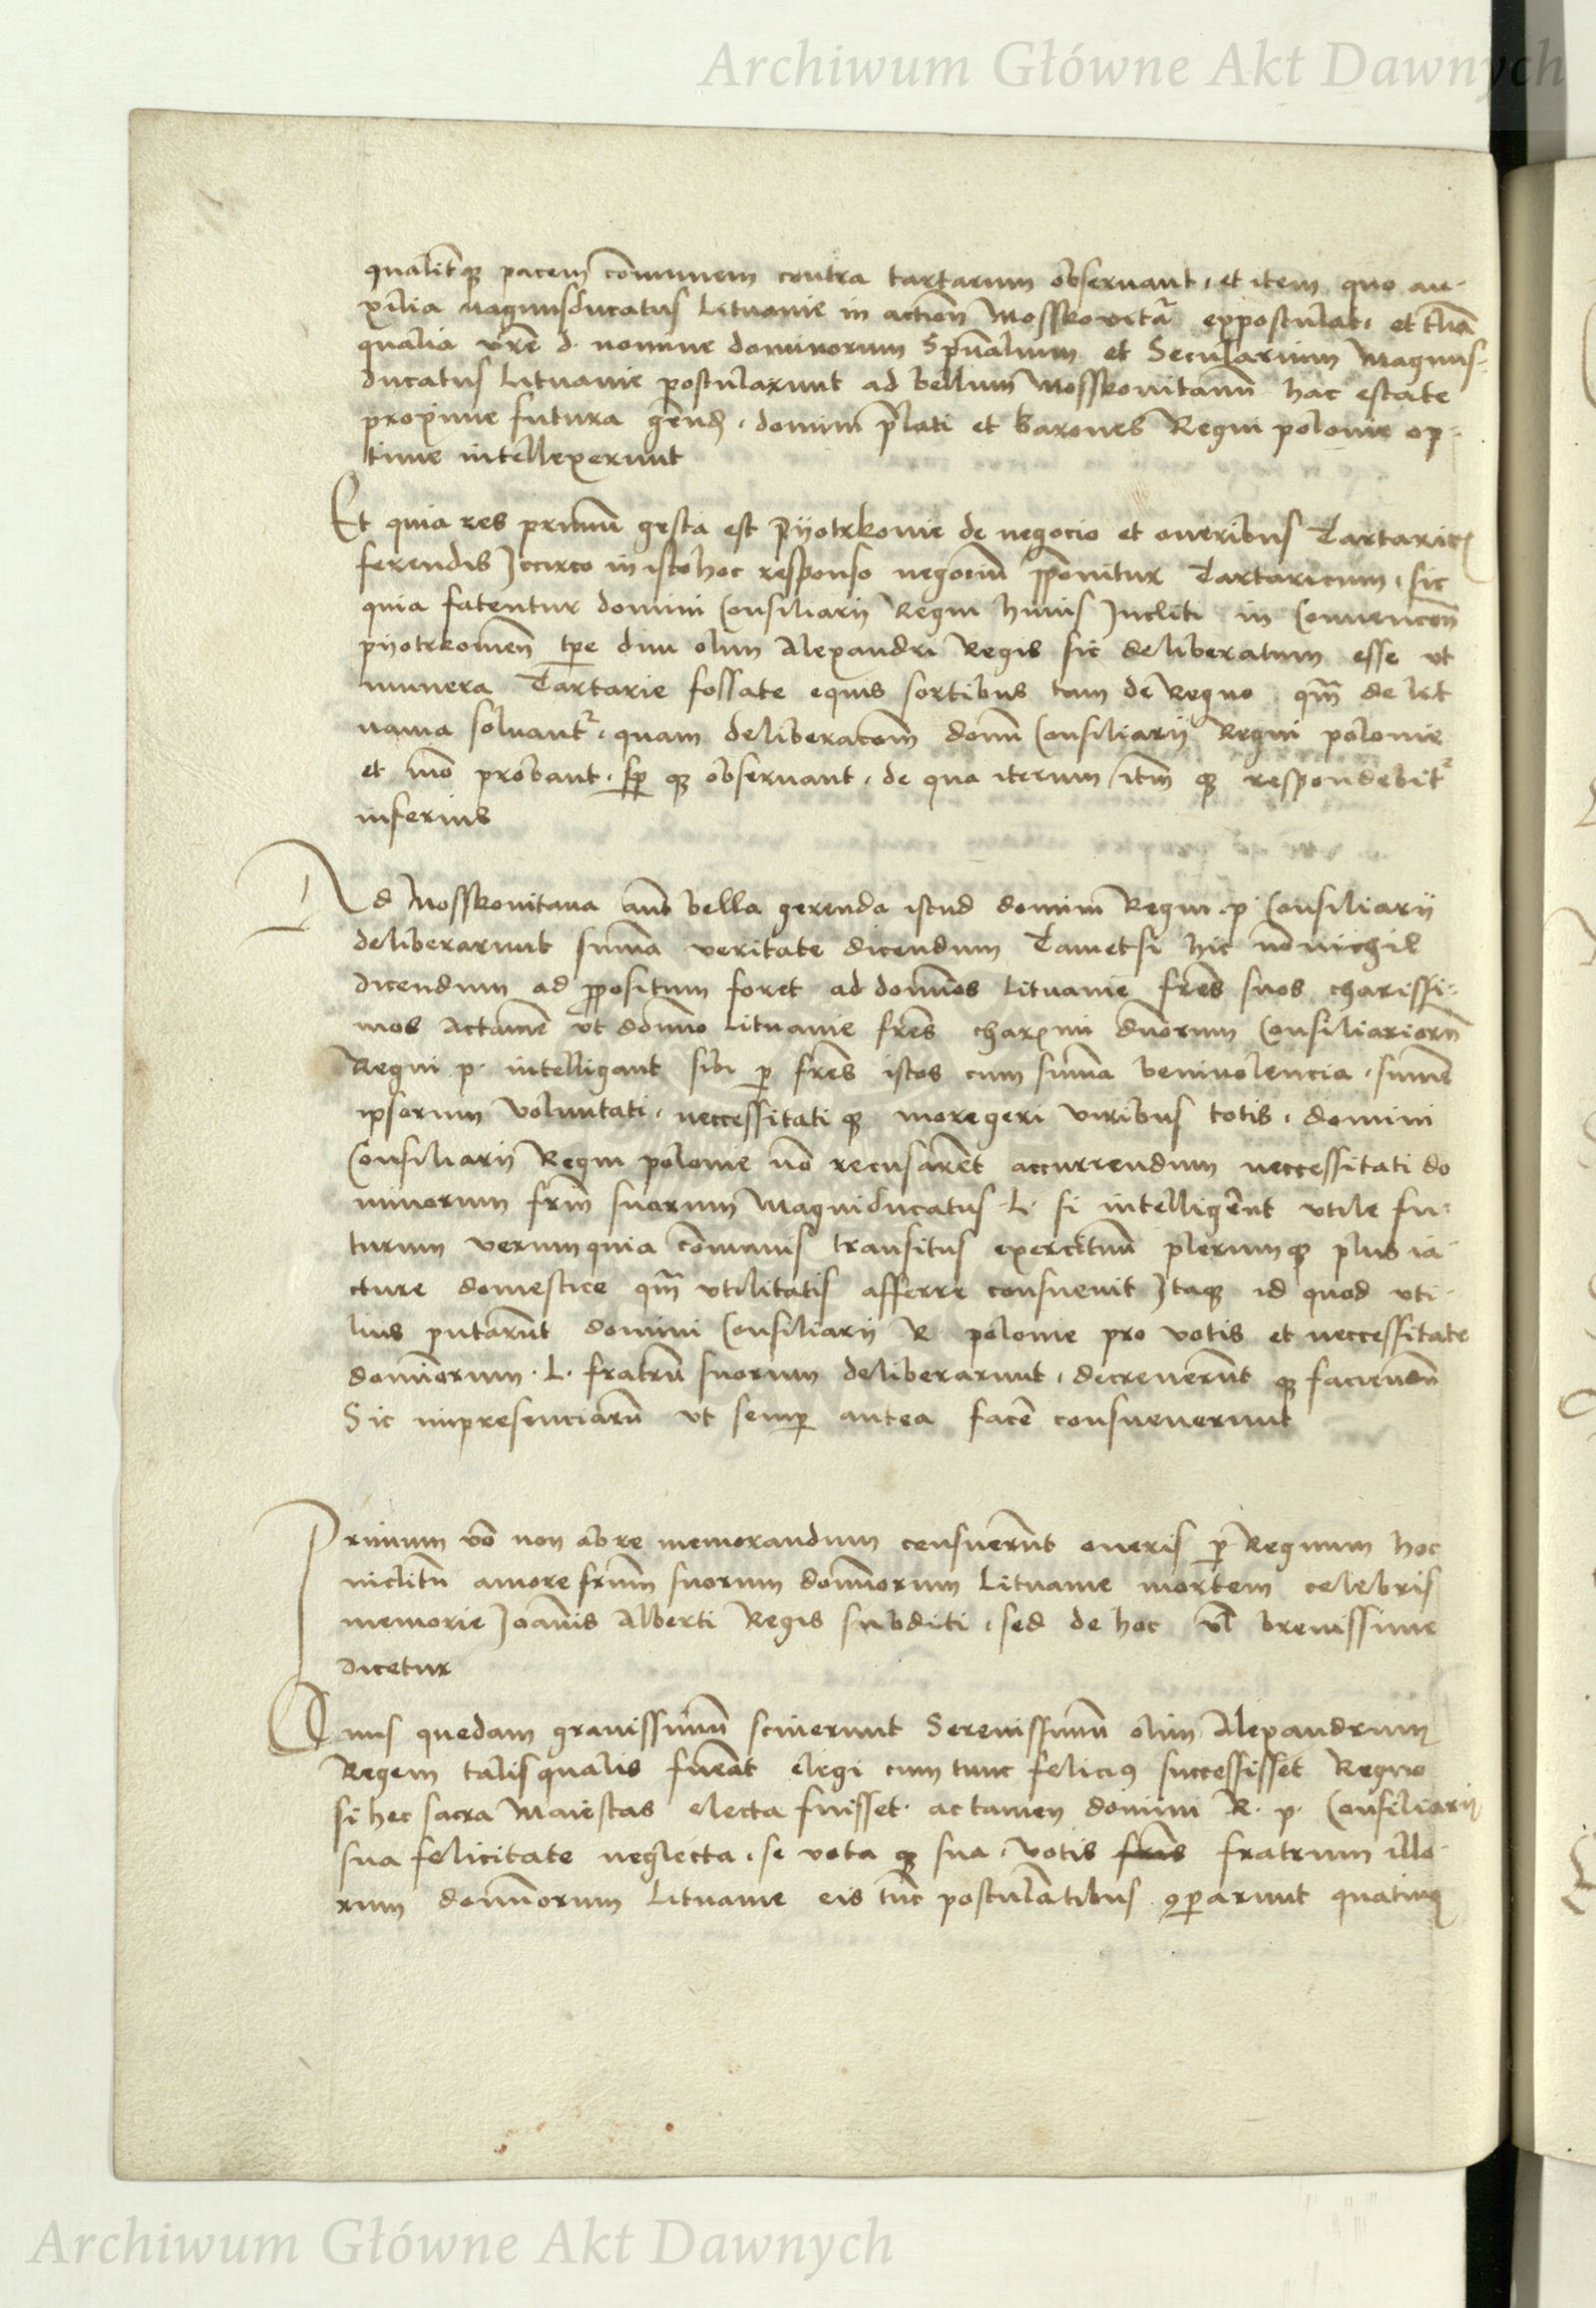 Archiwum Główne Akt Dawnych
qualitq̨ pacem cōmunem contra tartarum obseruant, et item quo au-
xilia magnusducatus Lituanie in actiōn Mosskovitā expostulat, et etiā
qualia vr̄e d. nomine dominorum Spūalium et Secularium Magnus-
ducatus Lituanie postularunt ad bellum Mosskouitanū hac estate
proxime futura domini p̄lati et barones Regni polonie op-
time intellexerunt
Et quia res primū gesta est Pyotrkouie de negocio et oneribus Tartaric
ferendis Iccirco in isto hoc responso negociū p̄ponitur Tartaricum, sic
quia fatentur domini Consiliarij Regni huius Incliti in Conuenc̄on
pyotrkouien̄ tp̄e diui olim Alexandri Regis sic deliberatum esse vt
munera Tartarie fossate equis sortibus tam de Regno qm̄ de lit
uania soluant᷑, quam deliberac̄om domī Consiliarij Regni polonie
et mō probant, sp̄ q̨ obseruant, de qua iterum itm̄ q̨ respondebit᷑
inferius
Ad Mosskouitana aūt bella gerenda istud domini Regni p. Consiliarij
deliberarunt sum̄a veritate dicendum Tametsi hic nōnichil
dicendum ad p̄positum foret ad domīos Lituanie fr̄es suos charissi-
mos Actamē vt domīo Lituanie fr̄es charimi dn̄orum Consiliariorū
Regni p. intelligant sibi p̱ fr̄es istos cum sum̄a beniuolencia, sum̄e
ipsorum voluntati, neccessitati q̨ moregeri viribus totis, domini
Consiliarij Regni polonie nō recusarēt accurrendum neccessitati do
minorum frm̄ suorum Magniducatus L. si intelligēnt vtile fu-
turum verumquia cōmunis transitus exercituū plerumq̨ plus ia-
cture domestice qm̄ vtilitatis afferre consueuit Itaq̨ id quod vti-
lius putarūt domini Consiliarij R. polonie pro votis et neccessitate
domīorum L. fratrū suorum deliberarunt, decreuerūt q̨ faciendū
Sic impresenciarū vt semp̱ antea facē consueuerunt
Primum vō non abre memorandum censuerūt oneris p̱ Regnum hoc
inclitū amore frūm suorum domīorum Lituanie mortem celebris
memorie Ioānis Alberti Regis subditi, sed de hoc vl̄ breuissime
dicetur
quedam grauissimū sciuerunt Serenissimū olim Alexandrum
Regem talisqualis fuerāt eligi cum tunc felicius successisset Regno
si hec sacra Maiestas electa fuisset. ac tamen domini R. p. Consiliarij
sua felicitate neglecta, se vota q̨ sua, votis fr̄is fratrum illo-
rum domīorum Lituanie eis tūc postulātibus ꝯparunt quatinus
Archiwum Główne Akt Dawnych